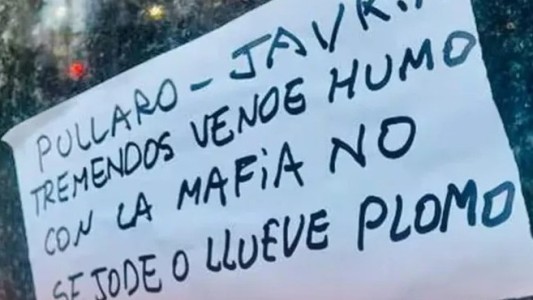 PULLARO - JAVK
TREMENDOS VENDE HUMO
CON LA MAFIA NO
SE JODE O LLUEVE PLOMO